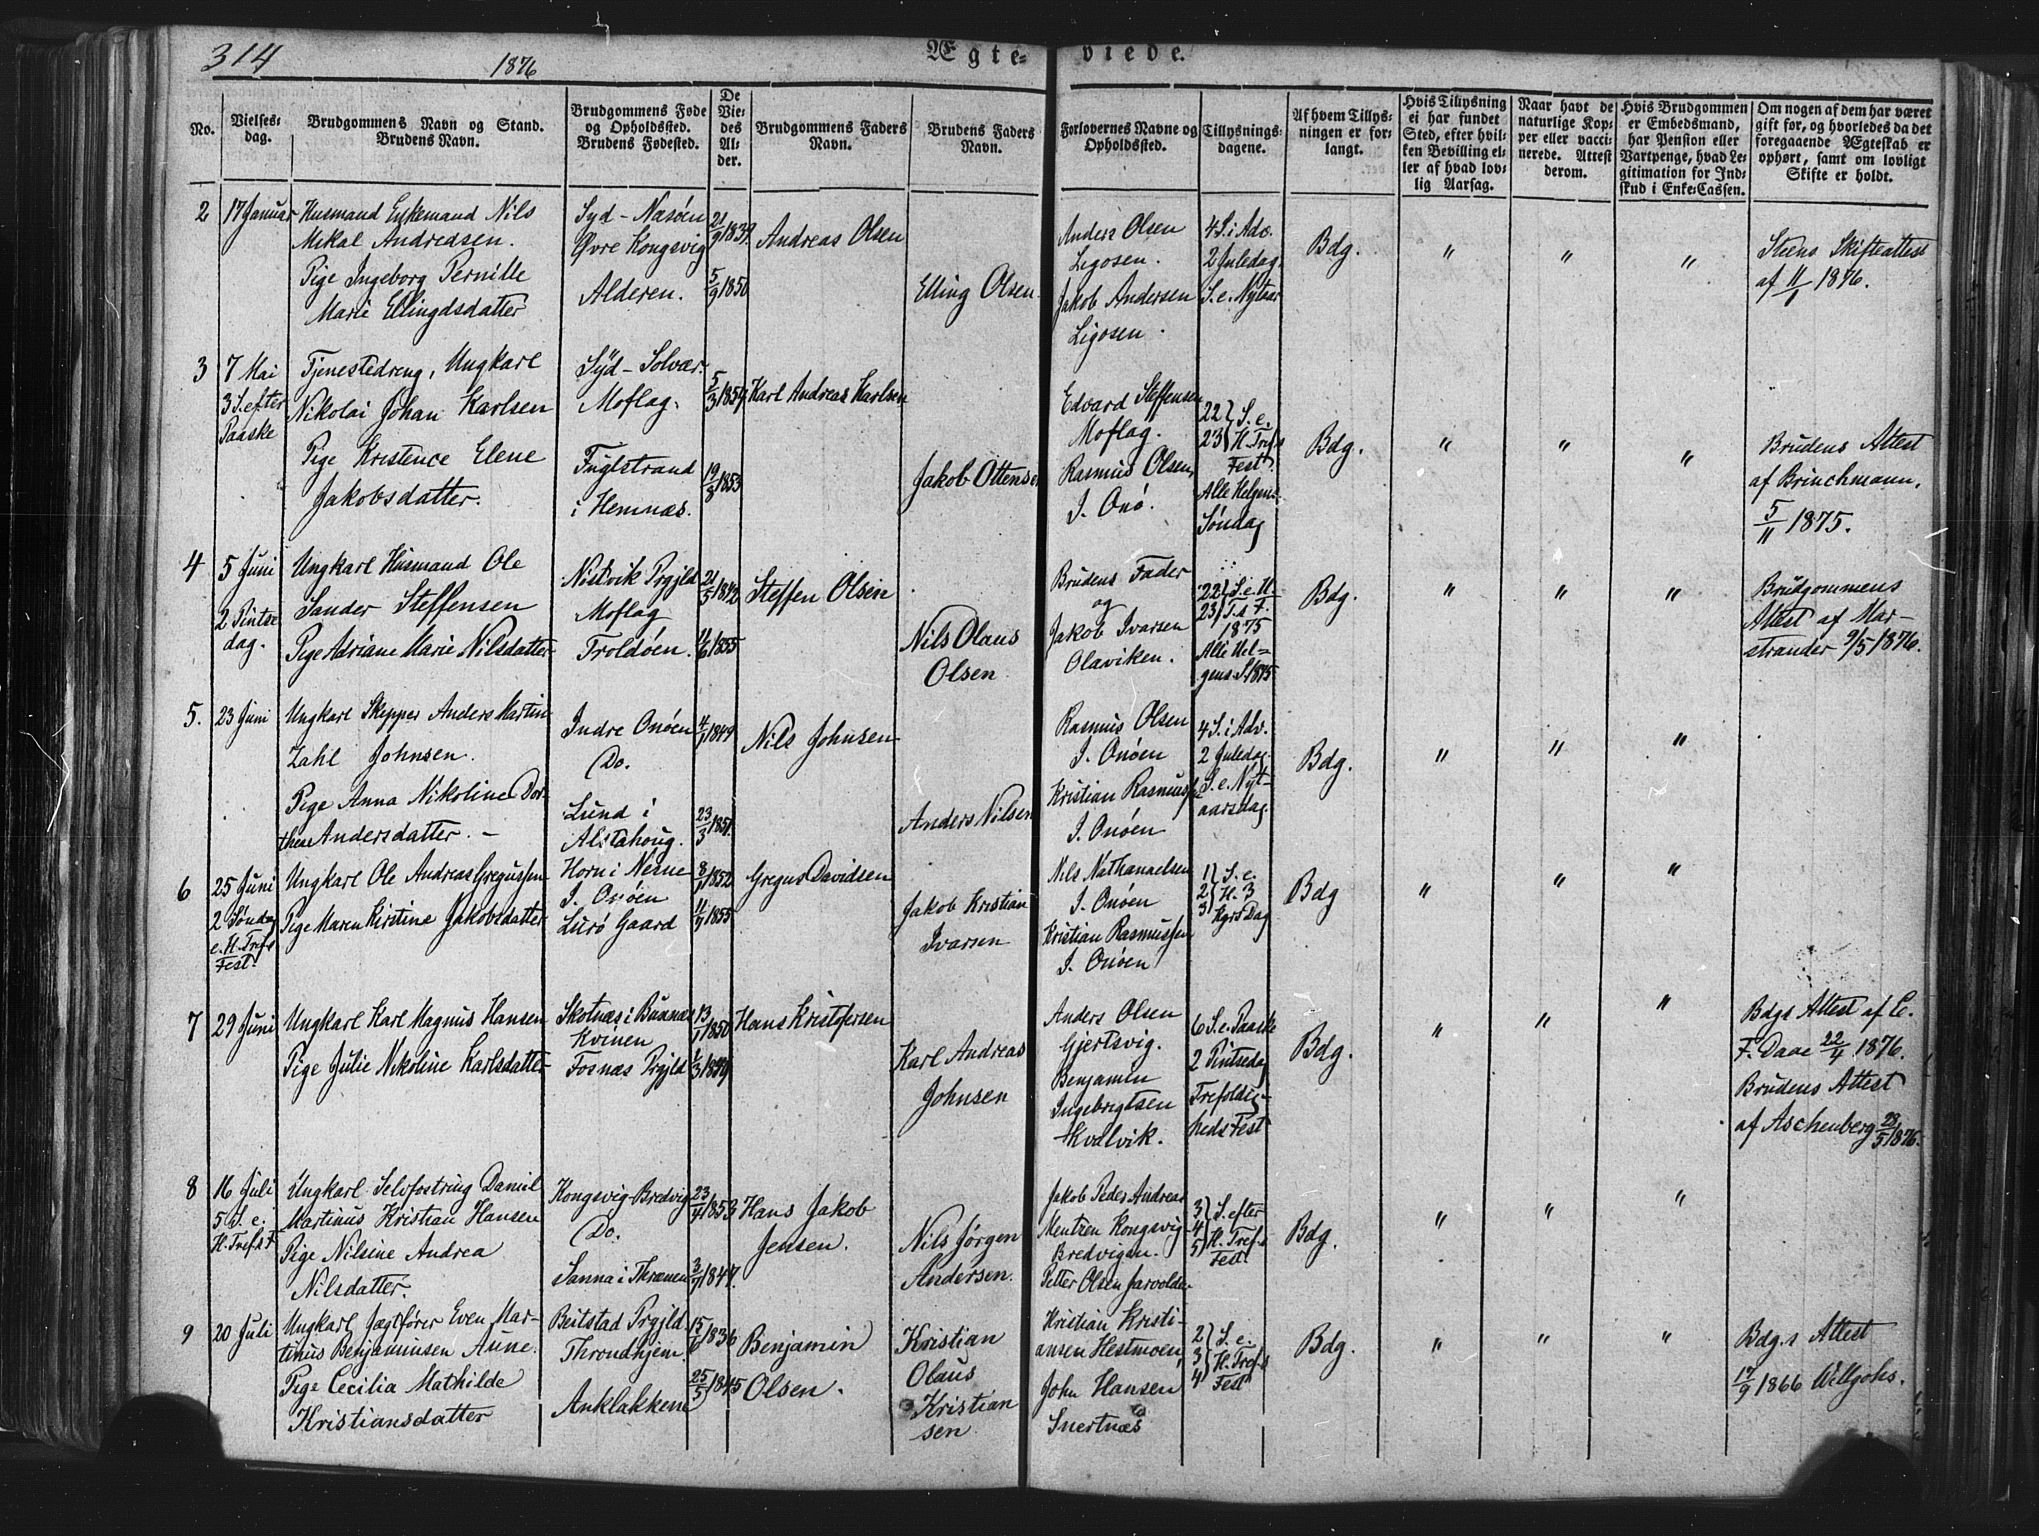 314
1876
Ægte-
viede.
No.
Vielses-
dag.
Brudgommens Navn og Stand.
Brudens Navn.
Brudgommens Føde
og Opholdssted.
Brudens Fødested.
De
Vie-
des
Al-
der.
Brudgommens Faders
Navn.
Brudens Faders
Navn.
Forlovernes Navne og
Opholdssted.
Tillysnings-
dagene.
Af hvem Tillys-
ningen er for-
langt.
Hvis Tillysning
ei har fundet
Sted, efter hvil-
ken Bevilling el-
ler af hvad lov-
lig Aarsag.
Naar havt de
naturlige Kop-
per eller vacci-
nerede. Attest
derom.
Hvis Brudgommen
er Embedsmand,
har Pension eller
Vartpenge, hvad Le-
gitimation for Ind-
skud i Enke-Cassen.
Om nogen af dem har været
gift før, og hvorledes da det
foregaaende Ægteskab er
ophørt, samt om lovligt
Skifte er holdt.
2
17 Januar
Husmand Enkemand Nils
Mikal Andreasen.
Pige Ingeborg Pernille
Marie Ellingdsdatter
Syd-Næsøen
Øvre Kongsvig
Alderen.
21/9 1839
5/9 1850
Andreas Olsen
Elling Olsen.
Anders Olsen
Ligosen.
Jakob Andersen
Ligosen.
4 S. i Adv.
2 Juledag.
S. e. Nytaar
Bdg.
"
"
"
Steens Skifteattest
af 11/1 1876.
3
7 Mai
3 S. efter
Paaske
Tjenestedreng, Ungkarl
Nikolai Johan Karlsen
Pige Kristence Elene
Jakobsdatter.
Syd-Solvær
Moflag.
Fuglstrand
i Hemnæs.
5/3 1854
19/8 1853
Karl Andreas Karlsen
Jakob Ottensen
Edvard Steffensen
Moflag.
Rasmus Olsen,
I. Onø.
22 } S. e.
23 } H. Tref.s
Fest.
Alle Helgens
Søndag
Bdg.
"
"
"
Brudens Attest
af Brinchmann,
5/11 1875.
4
5 Juni
2 Pintse
dag.
Ungkarl Husmand Ole
Sander Steffensen
Pige Adriane Marie Nilsdatter
Nistvik Prgjld
Moflag
Troldøen.
21/5 1842
11/6 1855
Steffen Olsen
Nils Olaus
Olsen
Brudens Fader
og
Jakob Ivarsen
Olaviken.
22 } S. e. H
23 } T.s F.
1875
Alle Hel=
gens. S. 1875
Bdg.
"
"
"
Brudgommens
Attest af Mar-
strander 9/5 1876.
5.
23 Juni
Ungkarl Skipper Anders Martin
Zahl Johnsen.
Pige Anna Nikoline Dor-
thea Andersdatter. -
Indre Onøen
Do.
Lund i
Alstahoug.
4/1 1849
23/3 1851.
Nils Johnsen
Anders Nilsen
Rasmus Olsen
I. Onøen
Kristian Rasmussen
I. Onøen
4 S. i Adv.
2 Juledag
S. e. Nyt-
aarsdag
Bdg.
"
"
"
6
25 Juni
2 Søndag
e. H. Tref.s
Fest.
Ungkarl Ole Andreas Gregussen
Pige Maren Kirstine Jakobsdatter
Horn i Nesne
I. Onøen
Lurø Gaard
8/1 1852
11/9 1855
Gregus Davidsen
Jakob Kristian
Ivarsen
Nils Nathanaelsen
I. Onøen
Kristian Rasmussen
I. Onøen
1 } S. e.
2 } H. 3
3 } Kgrs Dag
Bdg
"
"
"
7
29 Juni
Ungkarl Karl Magnus Hansen
Pige Julie Nikoline Karlsdatter
Skotnæs i Buxnæs
Kvinen
Fosnæs Prgjld
13/1 1850
1/3 1849
Hans Kristofersen
Karl Andreas
Johnsen
Anders Olsen
Gjertsvig.
Benjamin
Ingebrigtsen
Kvalvik.
6 S. e. Paaske
2 Pintsedag
Trefoldig-
heds Fest
Bdg.
"
"
"
Bdgs Attest af C.
F. Daae 22/4 1876.
Brudens Attest
af Aschenberg 28/5 1876.
8
16 Juli
5 S. e.
H. Tref.s F
Ungkarl Selvfostring Daniel
Martinus Kristian Hansen
Pige Nilsine Andrea
Nilsdatter.
Kongsvig Bredvig
Do.
Sanna i Thrænen
23/4 1853
3/7 1847.
Hans Jakob
Jensen.
Nils Jørgen
Andersen.
Jakob Peder Andreas
Mentzen Kongsvig
Bredvigen.
Petter Olsen
3 } S. efter
4 } H. Tref.s
5 } Fest
Bdg.
"
"
"
9
20 Juli
Ungkarl Jægtfører Even Mar-
tinus Benjaminsen Aune.
Pige Cecilia Mathilde
Kristiansdatter
Beitstad Prgjld
Throndhjem.
Anklakken
15/6 1836
25/5 1845
Benjamin
Olsen.
Kristian
Olaus
Kristian
sen
Kristian Kristi-
ansen Hestmoen,
John Hansen
Snertnæs
2 } S. e.
3 } H. Tref.s
4 } Fest
Bdg.
"
"
"
Bdg.s Attest
17/9 1866 Wellgohs.